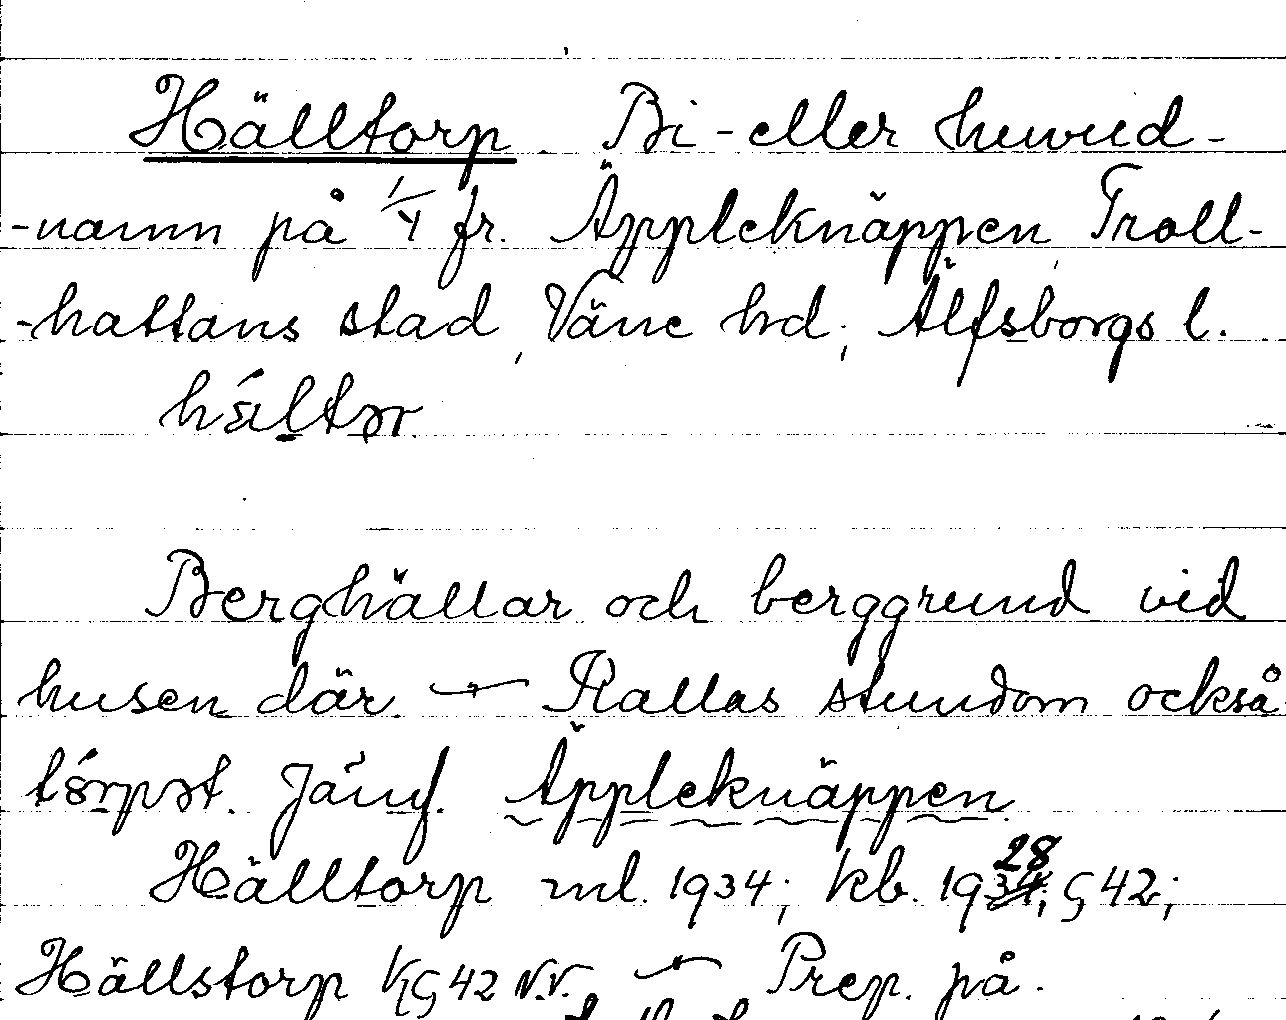 Hälltorp. Bi- eller huvud-
-namn på 1/4 fr. Äppleknäppen, Troll-
-hattans stad, Väne hd, Älfsborgs l.
Berghällar och berggrund vid
husen där — Kallas stundom också
Jämf. Äppleknäppen.
Hälltorp ml. 1934; kb. 1928; G 42;
Hällstorp KG 42 N.V. — Prep. på.